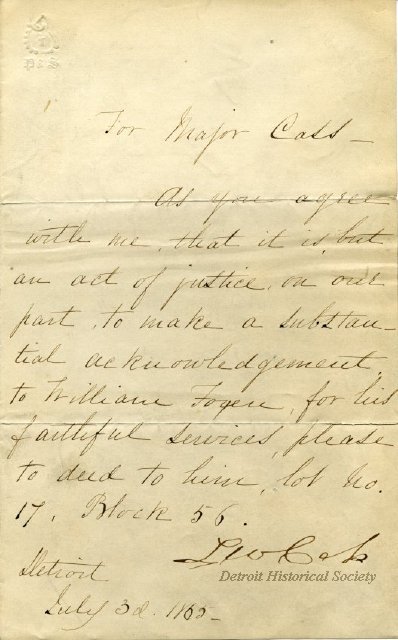 P & S
For Major Cass —
As you agree
with me, that it is but
an act of justice, on our
part, to make a substan-
tial acknowledgement,
to William Fogen, for his
faithful services, please
to deed to him, lot No.
17, Block 56.
Lew Cass
Detroit
July 3d. 1165 —
Detroit Historical Society